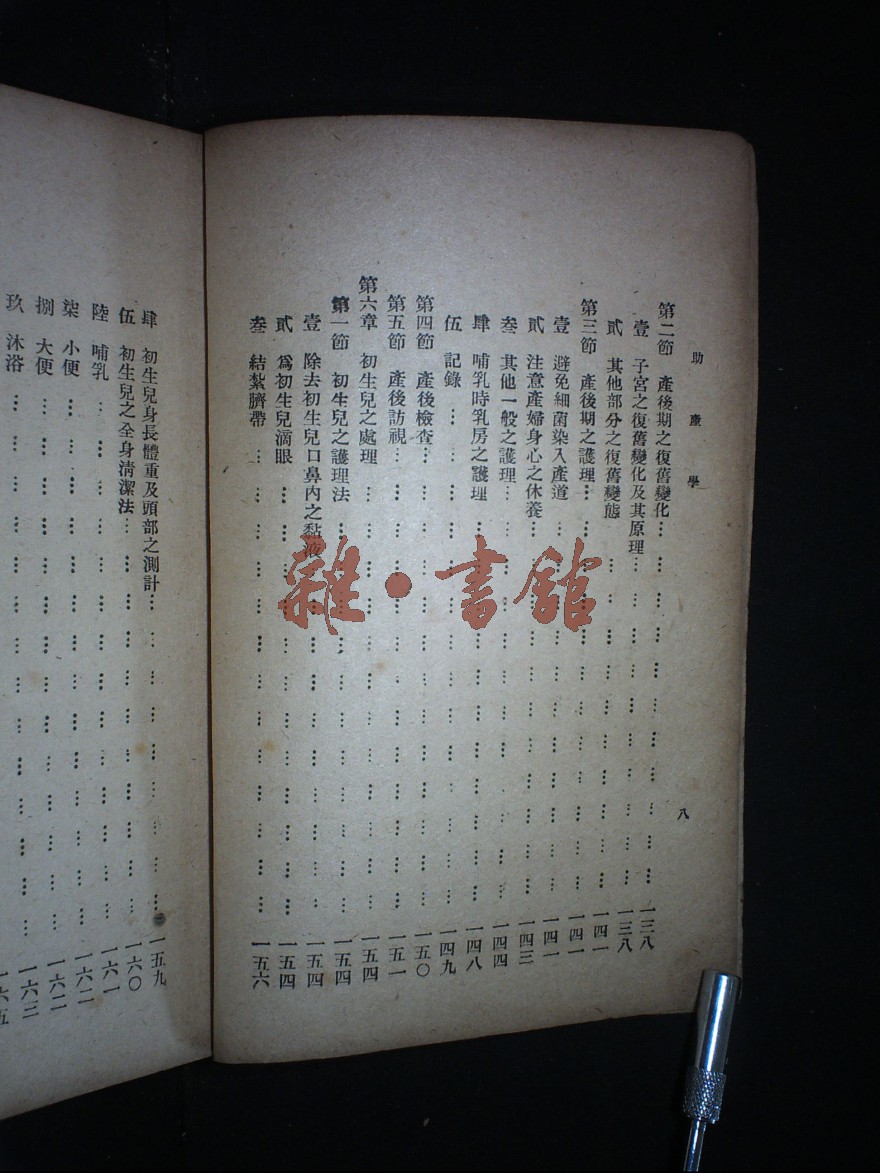 助產學
八
第二節　產後期之復舊變化……一三八
壹　子宮之復舊變化及其原理……一三八
貳　其他部分之復舊變態……一四一
第三節　產後期之護理……一四一
壹　避免細菌染入產道……一四一
貳　注意產婦身心之休養……一四三
叁　其他一般之護理……一四四
肆　哺乳時乳房之護理……一四八
伍　記錄……一四九
第四節　產後檢查……一五〇
第五節　產後訪視……一五一
第六章　初生兒之處理……一五四
第一節　初生兒之護理法……一五四
壹　除去初生兒口鼻內之黏液……一五四
貳　爲初生兒滴眼……一五四
叁　結紮臍帶……一五六
肆　初生兒身長體重及頭部之測計……一五九
伍　初生兒之全身清潔法……一六〇
陸　哺乳……一六一
柒　小便……一六二
捌　大便……一六三
玖　沐浴……一六五
雜·書館